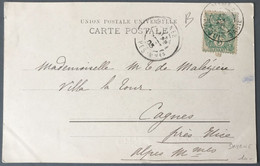 UNION POSTALE UNIVERSELLE
CARTE POSTALE
Mademoiselle M. L. de Malézieu
Villa la Tour
Cagnes
près Nice
Alpes Mmes